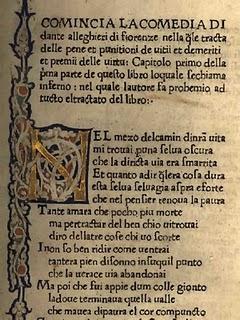 COMINCIA LA COMEDIA DI
dante alleghieri di fiorenze nella q̄le tracta
delle pene et punitioni de uitii et demeriti
et premii delle uirtu: Capitolo primo della
p̄ma parte de questo libro loquale sechiama
inferno : nel quale lautore fa prohemio ad
tucto eltractato del libro:·
NEL mezo delcamin dinr̄a uita
mi trouai puna selua oscura
che la diricta uia era smarrita
Et quanto adir q̄lera cosa dura
esta selua seluagia aspra eforte
che nel pensier renoua la paura
Tante amara che pocho piu morte
ma pertractar del ben chio uitrouai
diro dellatre cose chi uo scorte
I non so ben ridir come uentrai
tantera pien disonno insuquil punto
che la uerace uia abandonai
Ma poi che fui appie dum colle gionto
ladoue terminaua quella ualle
che mauea dipaura el cor compuncto